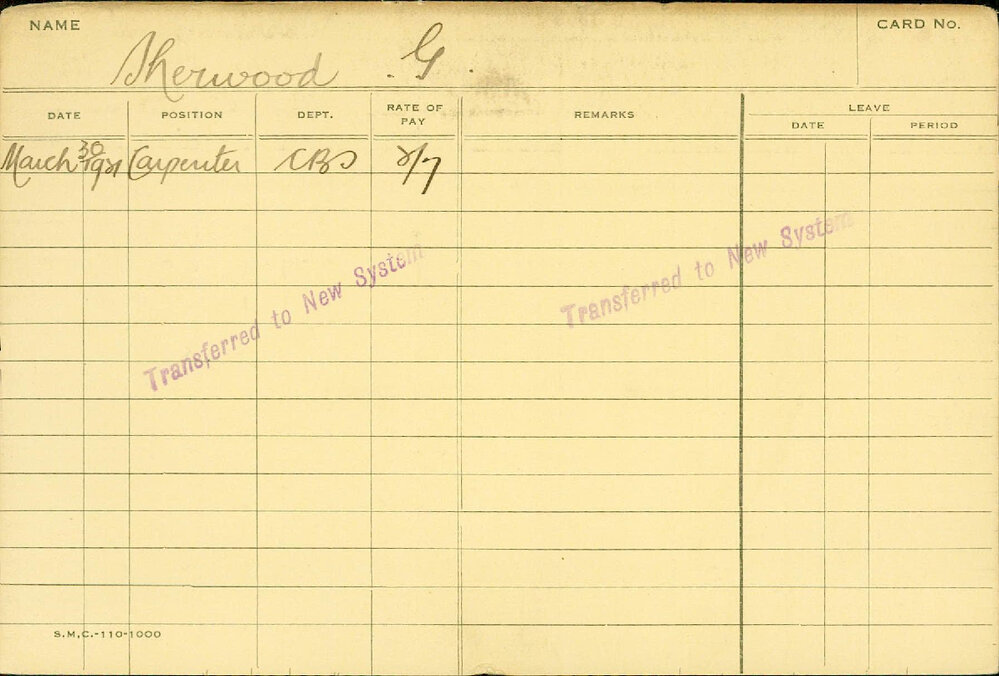 NAME
CARD No.
Sherwood G.
DATE
POSITION
DEPT.
RATE OF PAY
REMARKS
LEAVE
DATE
PERIOD
March 30 1921 Carpenter CBS 2/7
Transferred to New System
Transferred to New System
S.M.C.-110-1000